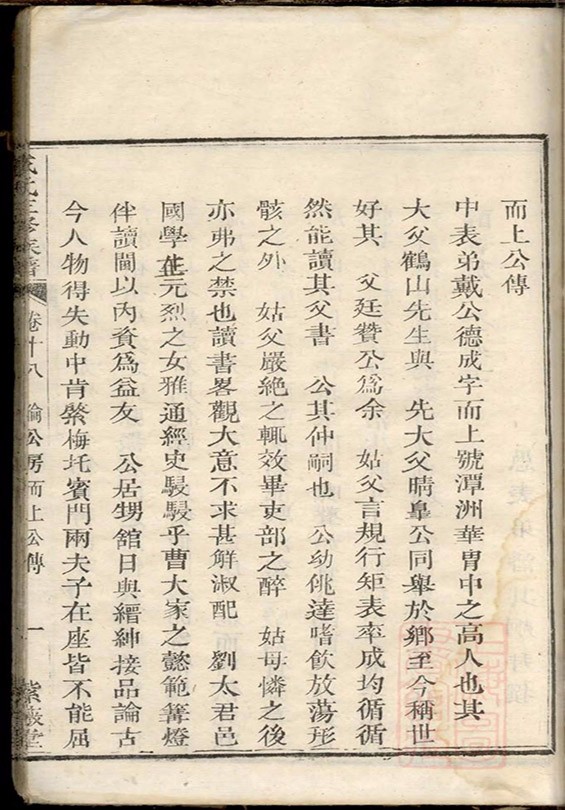 而上公傳
中表弟戴公德成字而上號潭洲華冑中之高人也其
大父鶴山先生與　先大父晴臯公同舉於鄉至今稱世
好其　父廷贊公爲余　姑父言規行矩表率成均循循
然能讀其父書　公其仲嗣也　公幼佻達嗜飲放蕩形
骸之外　姑父嚴絶之輒效畢吏部之醉　姑母憐之後
亦弗之禁也讀書畧觀大意不求甚解淑配　劉太君邑
國學生元烈之女雅通經史駸駸乎曹大家之懿範篝燈
伴讀閫以內資爲益友　公居甥舘日與縉紳接品論古
今人物得失動中肯綮梅圫賓門兩夫子在座皆不能屈
卷十八　綸公房而上公傳　一　紫薇堂